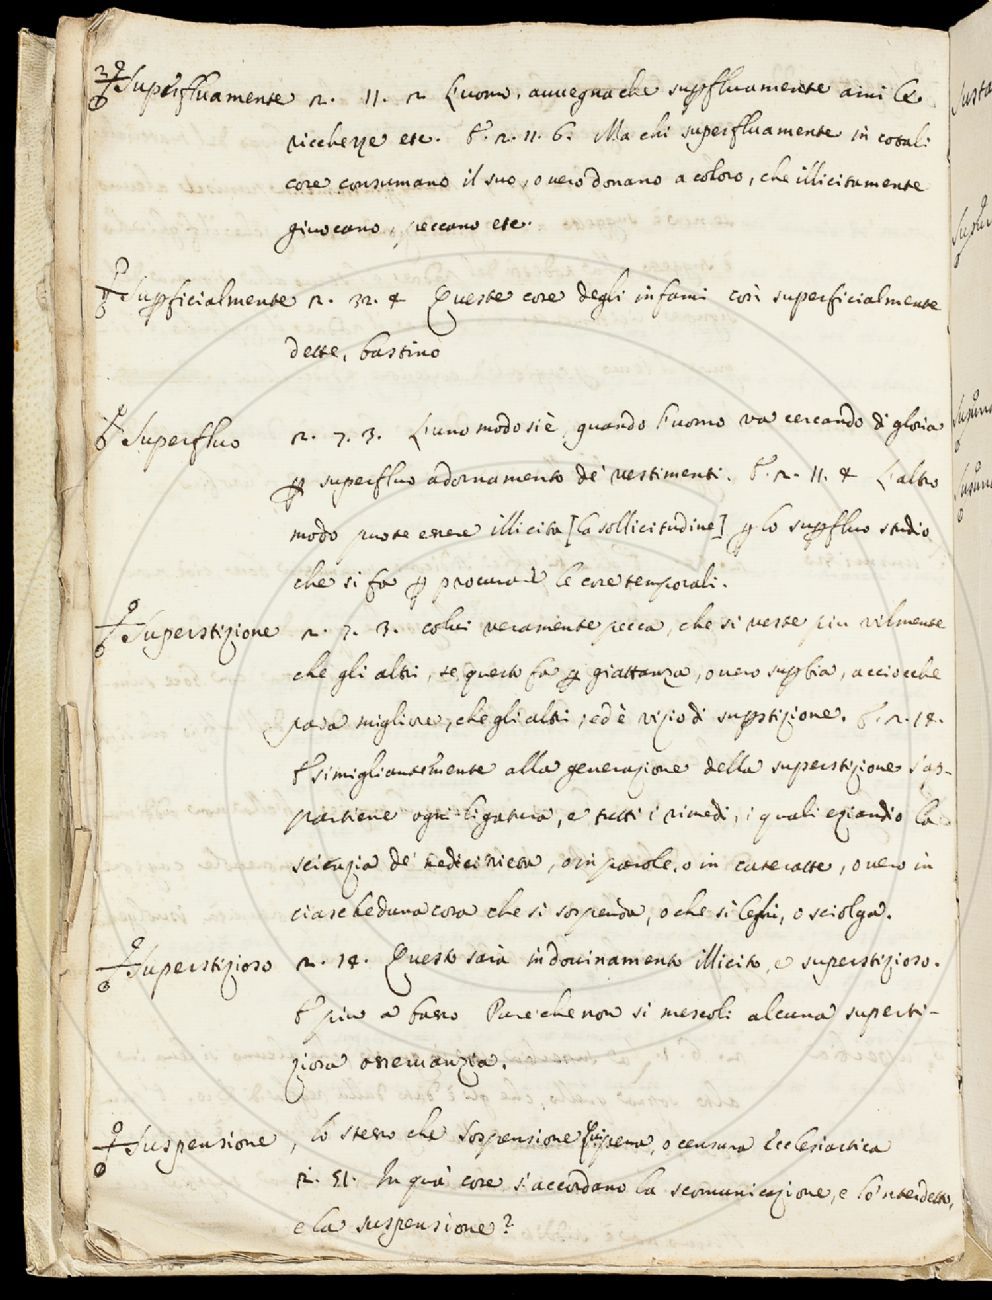 Superfluamente 2. 11. 2 L'uomo, avvegnache supfluamente ami le
ricchezze etc. E. 2. 11. 6. Ma chi superfluamente in cotali
cose consumano il suo, o vero donano a coloro, che illicitamente
giuocano, peccano etc.
Supficialmente 2. 32. 4 Queste cose degli infami così superficialmente
dette, bastino
Superfluo 2. 7. 3. L'uno modo si è, quando l'uomo va cercando di gloria
p superfluo adornamento de' vestimenti. E. 2. 11. 4 L'altro
modo puote essere illicita [la sollicitudine] p lo supfluo studio
che si fa p procurare le cose temporali.
Superstizione 2. 7. 3. colui veramente pecca, che si veste piu vilmente
che gli altri, se questo fa p giattanza, o vero supbia, acciocche
paia migliore, che gli altri, ed è vizio di supstizione. E. 2. 14.
E simigliantemente alla generazione della superstizione s'ap-
partiene ogni ligatura, e tutti i rimedi, i quali eziandio la
scienzia de' medici vieta, o in parole, o in caratte, o vero in
ciascheduna cosa che si sospenda, o che si leghi, o sciolga.
Superstizioso 2. 14. Questo saria indovinamento illicito, e superstizioso.
E piu a basso Pure che non si mescoli alcuna supersti-
ziosa osservanzia.
Suspensione, lo stesso che Sospensione pena, o censura Ecclesiastica
2. 51. In qua' cose s'accordano la scomunicazione, e lo 'nterdetto,
e la suspensione?